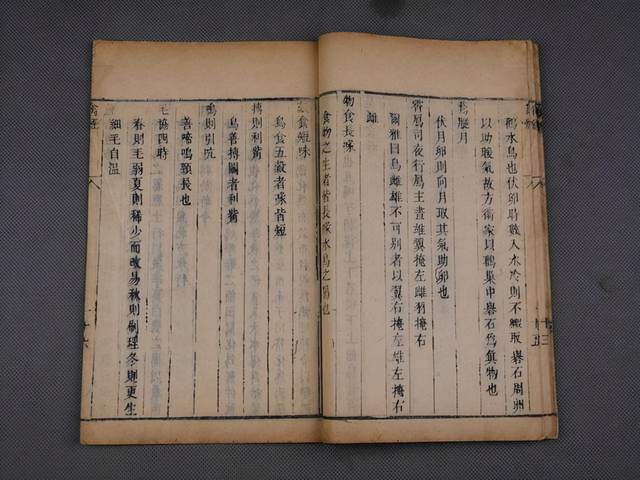 鸛水鳥也伏卵時數入水冷則不毈取礜石周卵
以助暖氣故方術家以鸛巢中礜石爲真物也
月
伏月卵則向月取其氣助卵也
宵扈司夜行扈主晝雄翼掩左雌翼掩右
爾雅曰鳥雌雄不可別者以翼右掩左雄左掩右
雌
物食長喙
食物之生者皆長喙水鳥之屬也
食短咮
鳥食五穀者喙皆短
搏則利觜
鳥善搏鬬者利觜
鳴則引吭
善啼鳴頸長也
毛協四時
春則毛弱夏則稀少而改易秋則刷理冬則更生
細毛自溫